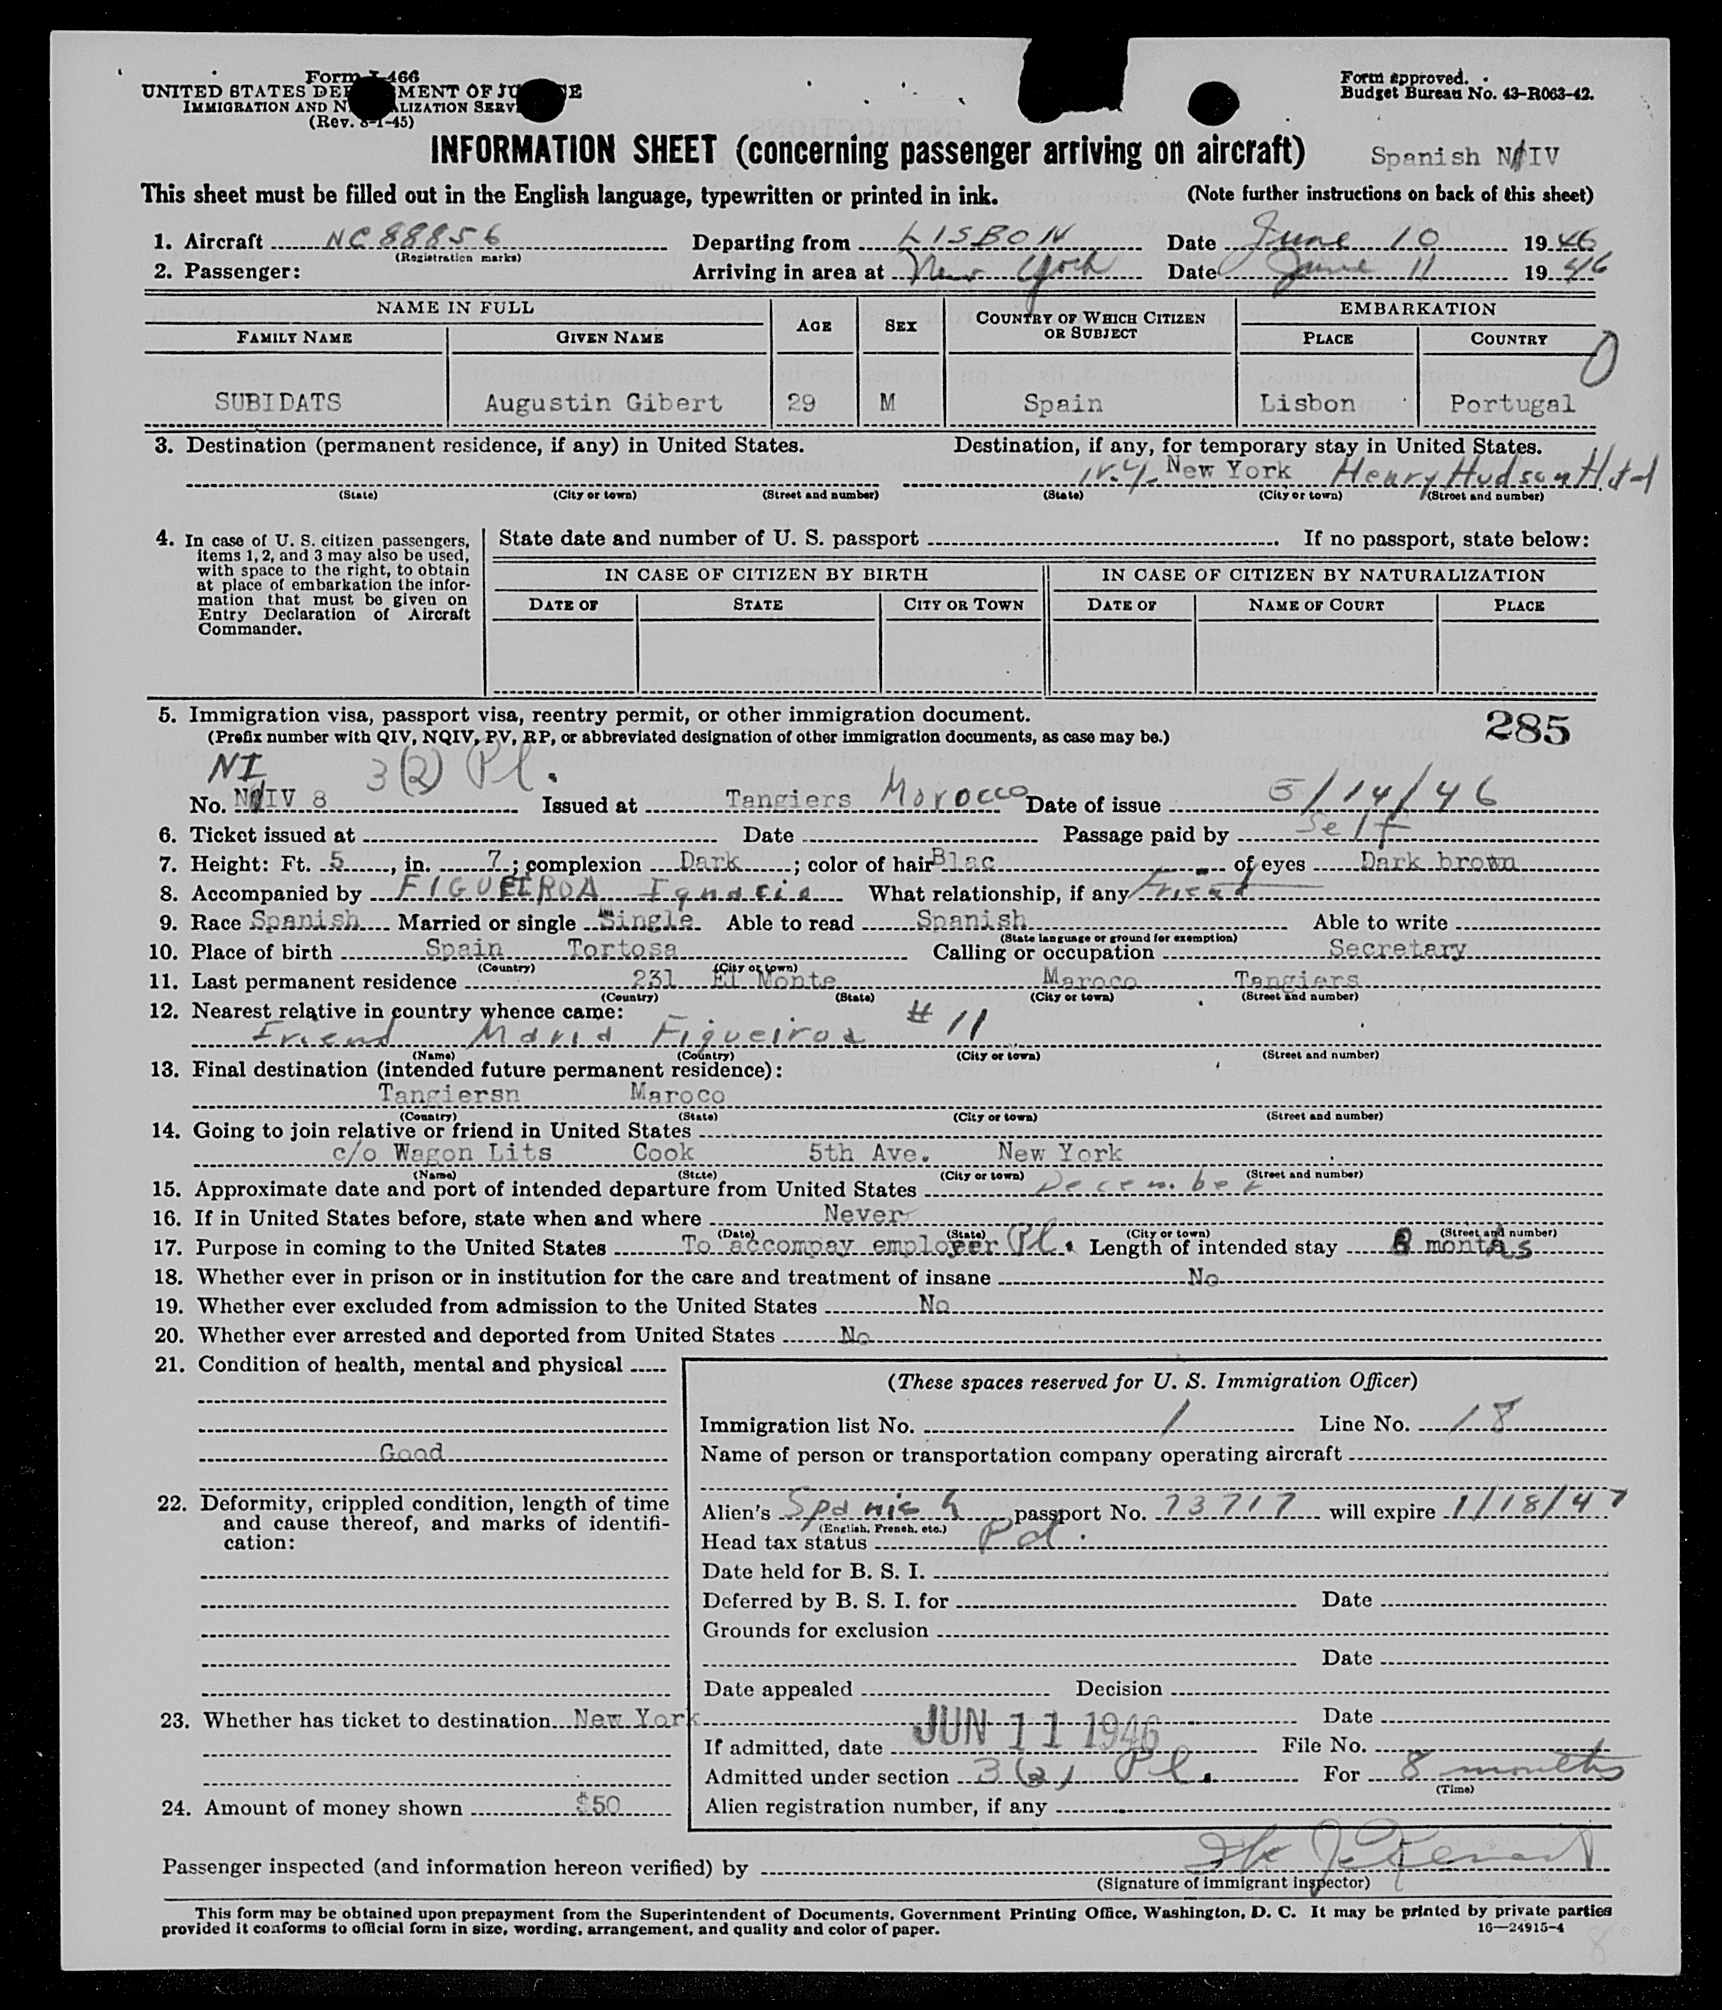 Form I-466
UNITED STATES DEPARTMENT OF JUSTICE
IMMIGRATION AND NATURALIZATION SERVICE
(Rev. 8-1-45)
Form approved.
Budget Bureau No. 43-R063-42.
INFORMATION SHEET (concerning passenger arriving on aircraft) Spanish NIV
This sheet must be filled out in the English language, typewritten or printed in ink. (Note further instructions on back of this sheet)
1. Aircraft NC 88856 Departing from LISBON Date June 10 1946
(Registration marks)
2. Passenger: Arriving in area at New York Date June 11 1946
NAME IN FULL AGE SEX COUNTRY OF WHICH CITIZEN OR SUBJECT EMBARKATION
FAMILY NAME GIVEN NAME PLACE COUNTRY
0
SUBIDATS Augustin Gibert 29 M Spain Lisbon Portugal
3. Destination (permanent residence, if any) in United States. Destination, if any, for temporary stay in United States.
N.Y. New York Henry Hudson Hotel
(State) (City or town) (Street and number) (State) (City or town) (Street and number)
4. In case of U. S. citizen passengers, items 1, 2, and 3 may also be used, with space to the right, to obtain at place of embarkation the information that must be given on Entry Declaration of Aircraft Commander.
State date and number of U. S. passport If no passport, state below:
IN CASE OF CITIZEN BY BIRTH IN CASE OF CITIZEN BY NATURALIZATION
DATE OF STATE CITY OR TOWN DATE OF NAME OF COURT PLACE
5. Immigration visa, passport visa, reentry permit, or other immigration document. 285
(Prefix number with QIV, NQIV, PV, RP, or abbreviated designation of other immigration documents, as case may be.)
NI 3(2) Pl.
No. NIV 8 Issued at Tangiers Morocco Date of issue 5/14/46
6. Ticket issued at Date Passage paid by Self
7. Height: Ft. 5, in. 7; complexion Dark; color of hair Blac of eyes Dark brown
8. Accompanied by FIGUEIROA Ignacio What relationship, if any Friend
9. Race Spanish Married or single Single Able to read Spanish Able to write
(State language or ground for exemption)
10. Place of birth Spain Tortosa Calling or occupation Secretary
(Country) (City or town)
11. Last permanent residence 231 El Monte Maroco Tangiers
(Country) (State) (City or town) (Street and number)
12. Nearest relative in country whence came: # 11
Friend Maria Figueiroa
(Name) (Country) (City or town) (Street and number)
13. Final destination (intended future permanent residence):
Tangiersn Maroco
(Country) (State) (City or town) (Street and number)
14. Going to join relative or friend in United States
c/o Wagon Lits Cook 5th Ave. New York
(Name) (State) (City or town) (Street and number)
15. Approximate date and port of intended departure from United States December
16. If in United States before, state when and where Never
(Date) (State) (City or town) (Street and number)
17. Purpose in coming to the United States To accompay employeer Pl. Length of intended stay 8 months
18. Whether ever in prison or in institution for the care and treatment of insane No
19. Whether ever excluded from admission to the United States No
20. Whether ever arrested and deported from United States No
21. Condition of health, mental and physical
Good
22. Deformity, crippled condition, length of time and cause thereof, and marks of identification:
23. Whether has ticket to destination New York
24. Amount of money shown $50
(These spaces reserved for U. S. Immigration Officer)
Immigration list No. 1 Line No. 18
Name of person or transportation company operating aircraft
Alien's Spanish passport No. 73717 will expire 1/18/47
(English, French, etc.)
Head tax status Pd.
Date held for B. S. I.
Deferred by B. S. I. for Date
Grounds for exclusion
Date
Date appealed Decision
Date
If admitted, date JUN 11 1946 File No.
Admitted under section 3(2) Pl. For 8 months
(Time)
Alien registration number, if any
Passenger inspected (and information hereon verified) by
(Signature of immigrant inspector)
This form may be obtained upon prepayment from the Superintendent of Documents, Government Printing Office, Washington, D. C. It may be printed by private parties
provided it conforms to official form in size, wording, arrangement, and quality and color of paper. 16—24915-4